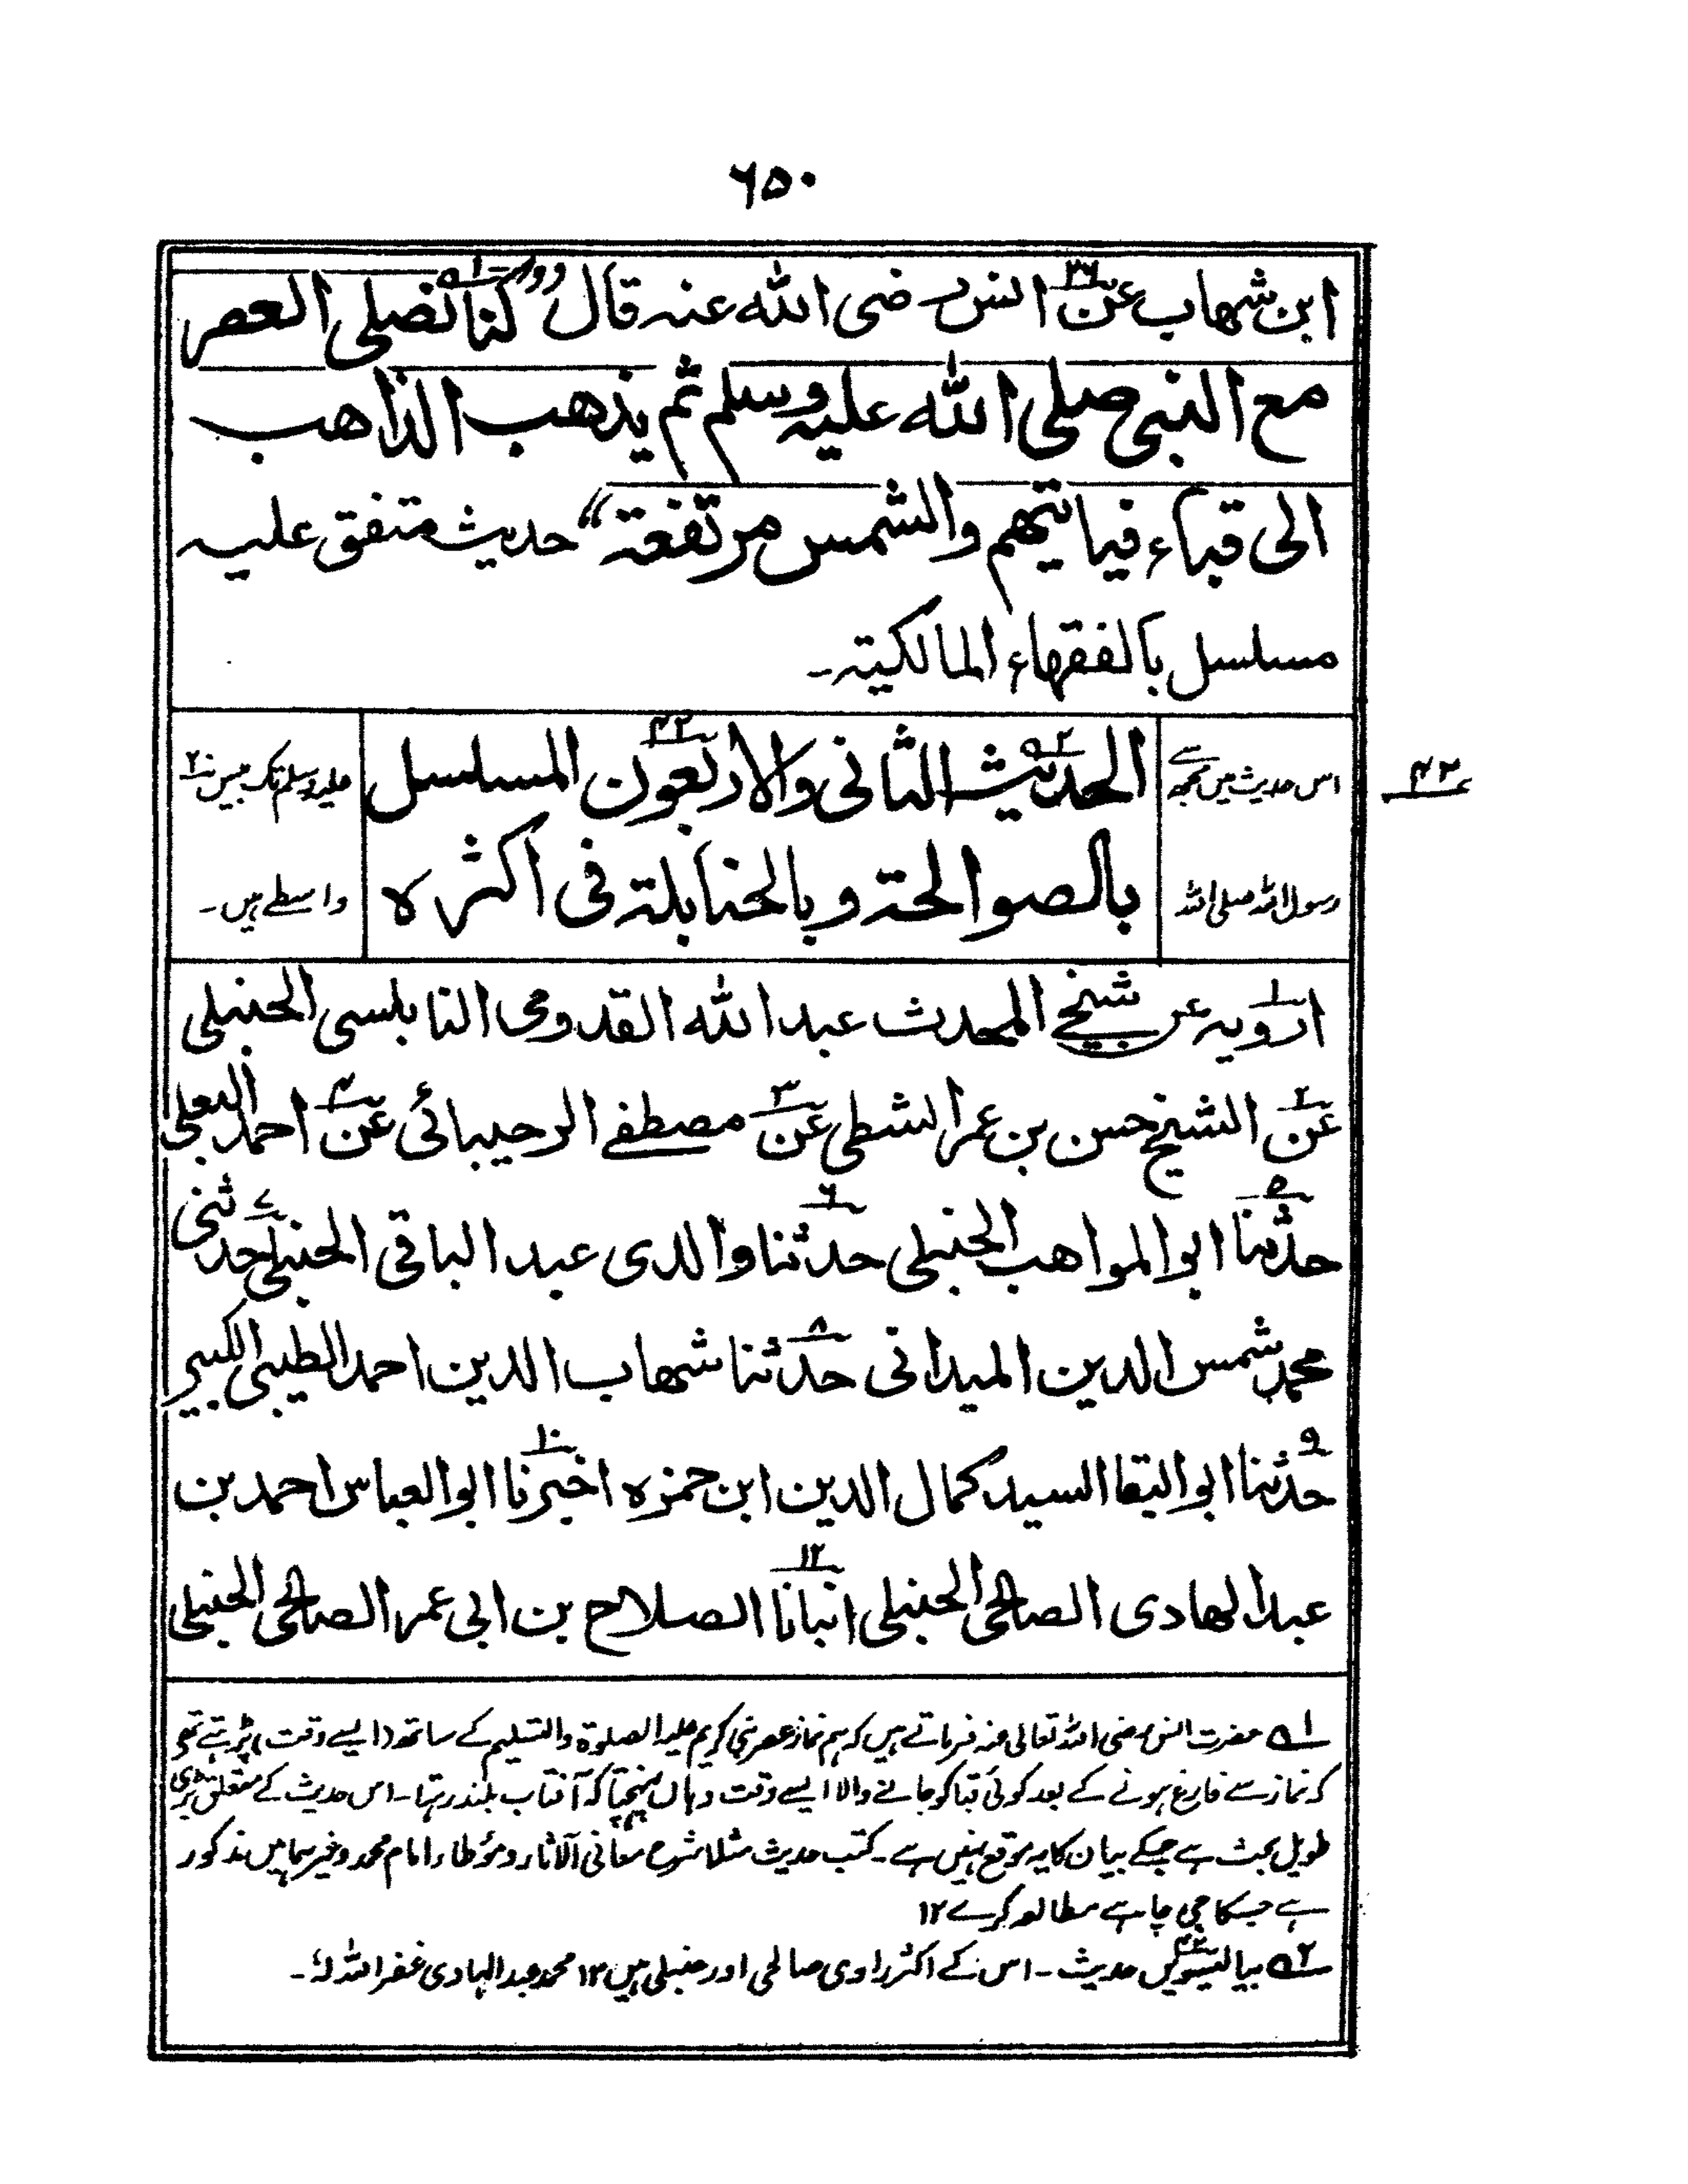 ۶۵۰
ابن شهاب عن انس رضى الله عنه قال ”كنا نصلى العصر
مع النبى صلى الله عليه وسلم ثم يذهب الذاهب
الى قباء فياتيهم والشمس مرتفعة“ حديث متفق عليه
مسلسل بالفقهاء المالكية۔
۴۲
اس حدیث میں مجھ سے
رسول اللہ صلی اللہ
الحديث الثانى والاربعون المسلسل
بالصوالحة وبالحنابلة فى اكثره
علیہ وسلم تک بیس ۲۰
واسطے ہیں۔
ارويه عن شيخى المحدث عبد الله القدومى النابلسى الحنبلى
عن الشيخ حسن بن عمر الشطى عن مصطفے الرحيبائى عن احمد البعلى
حدثنا ابو المواهب الحنبلى حدثنا والدى عبد الباقى الحنبلى حدثنى
محمد شمس الدين الميدانى حدثنا شهاب الدين احمد الطيبى الكبير
حدثنا ابو البقا السيد كمال الدين ابن حمزه اخبرنا ابو العباس احمد بن
عبد الهادى الصالحى الحنبلى انبانا الصلاح بن ابى عمر الصالحى الحنبلى
۱ے حضرت انس رضی اللہ تعالی عنہ فرماتے ہیں کہ ہم نماز عصر نبی کریم علیہ الصلوۃ والتسلیم کے ساتھ (ایسے وقت) پڑہتے تھے
کہ نماز سے فارغ ہونے کے بعد کوئی قبا کو جانے والا ایسے وقت وہاں پہنچتا کہ آفتاب بلند رہتا۔ اس حدیث کے متعلق بڑی
طویل بحث ہے جسکے بیان کا یہ موقع نہیں ہے۔ کتب حدیث مثلا شرح معانی الآثار و مؤطاء امام محمد وغیرہما میں مذکور
ہے جسکا جی چاہے مطالعہ کرے ۱۲
۲ے بیالیسویں حدیث۔ اس کے اکثر راوی صالحی اور حنبلی ہیں ۱۲ محمد عبد الہادی غفر اللہ لہٗ۔